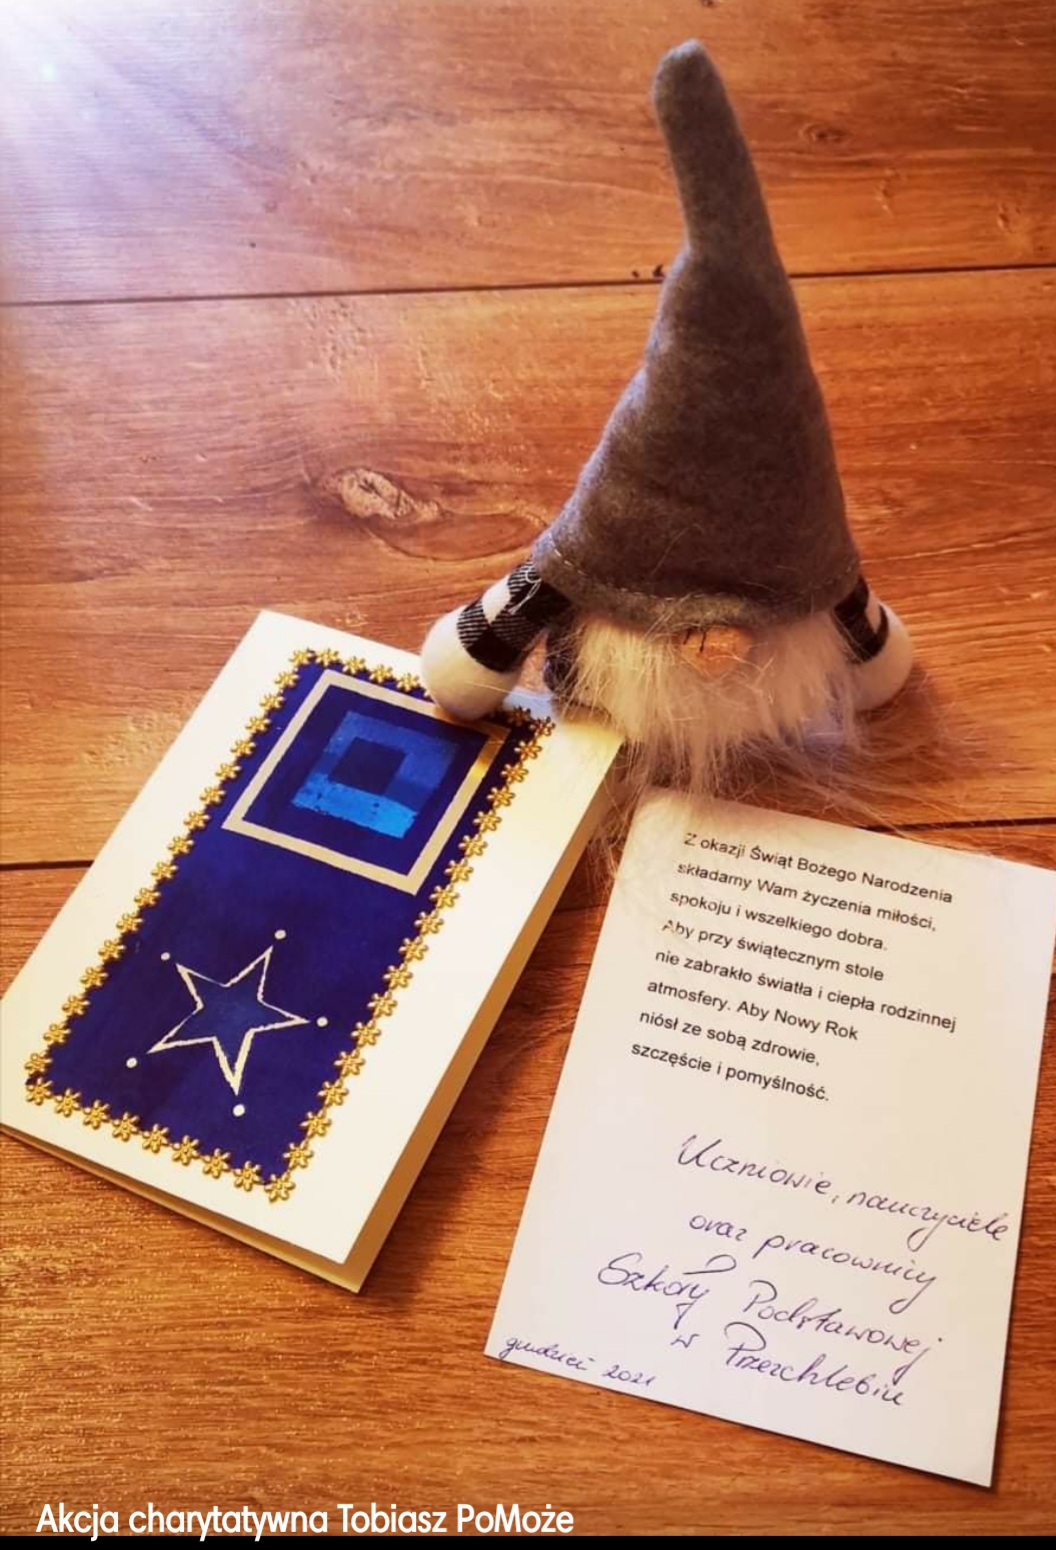 Z okazji Świąt Bożego Narodzenia
składamy Wam życzenia miłości,
spokoju i wszelkiego dobra.
Aby przy świątecznym stole
nie zabrakło światła i ciepła rodzinnej
atmosfery. Aby Nowy Rok
niósł ze sobą zdrowie,
szczęście i pomyślność.
Uczniowie, nauczyciele
oraz pracownicy
Szkoły Podstawowej
w Przerchlebiu
grudzień 2021
Akcja charytatywna Tobiasz PoMoże